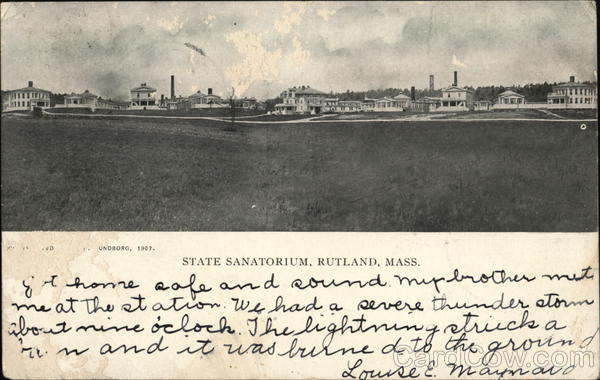 UNDBORG, 1907.
STATE SANATORIUM, RUTLAND, MASS.
home safe and sound. My brother met
me at the station. We had a severe thunder storm
about nine o'clock. The lightning struck a
and it was burned to the ground
Louise E. Maynard
CardCow.com